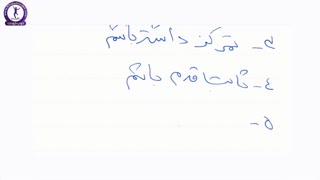 ۳- تمرکز داشته باشم
٤- ثابت قدم باشم
۵-